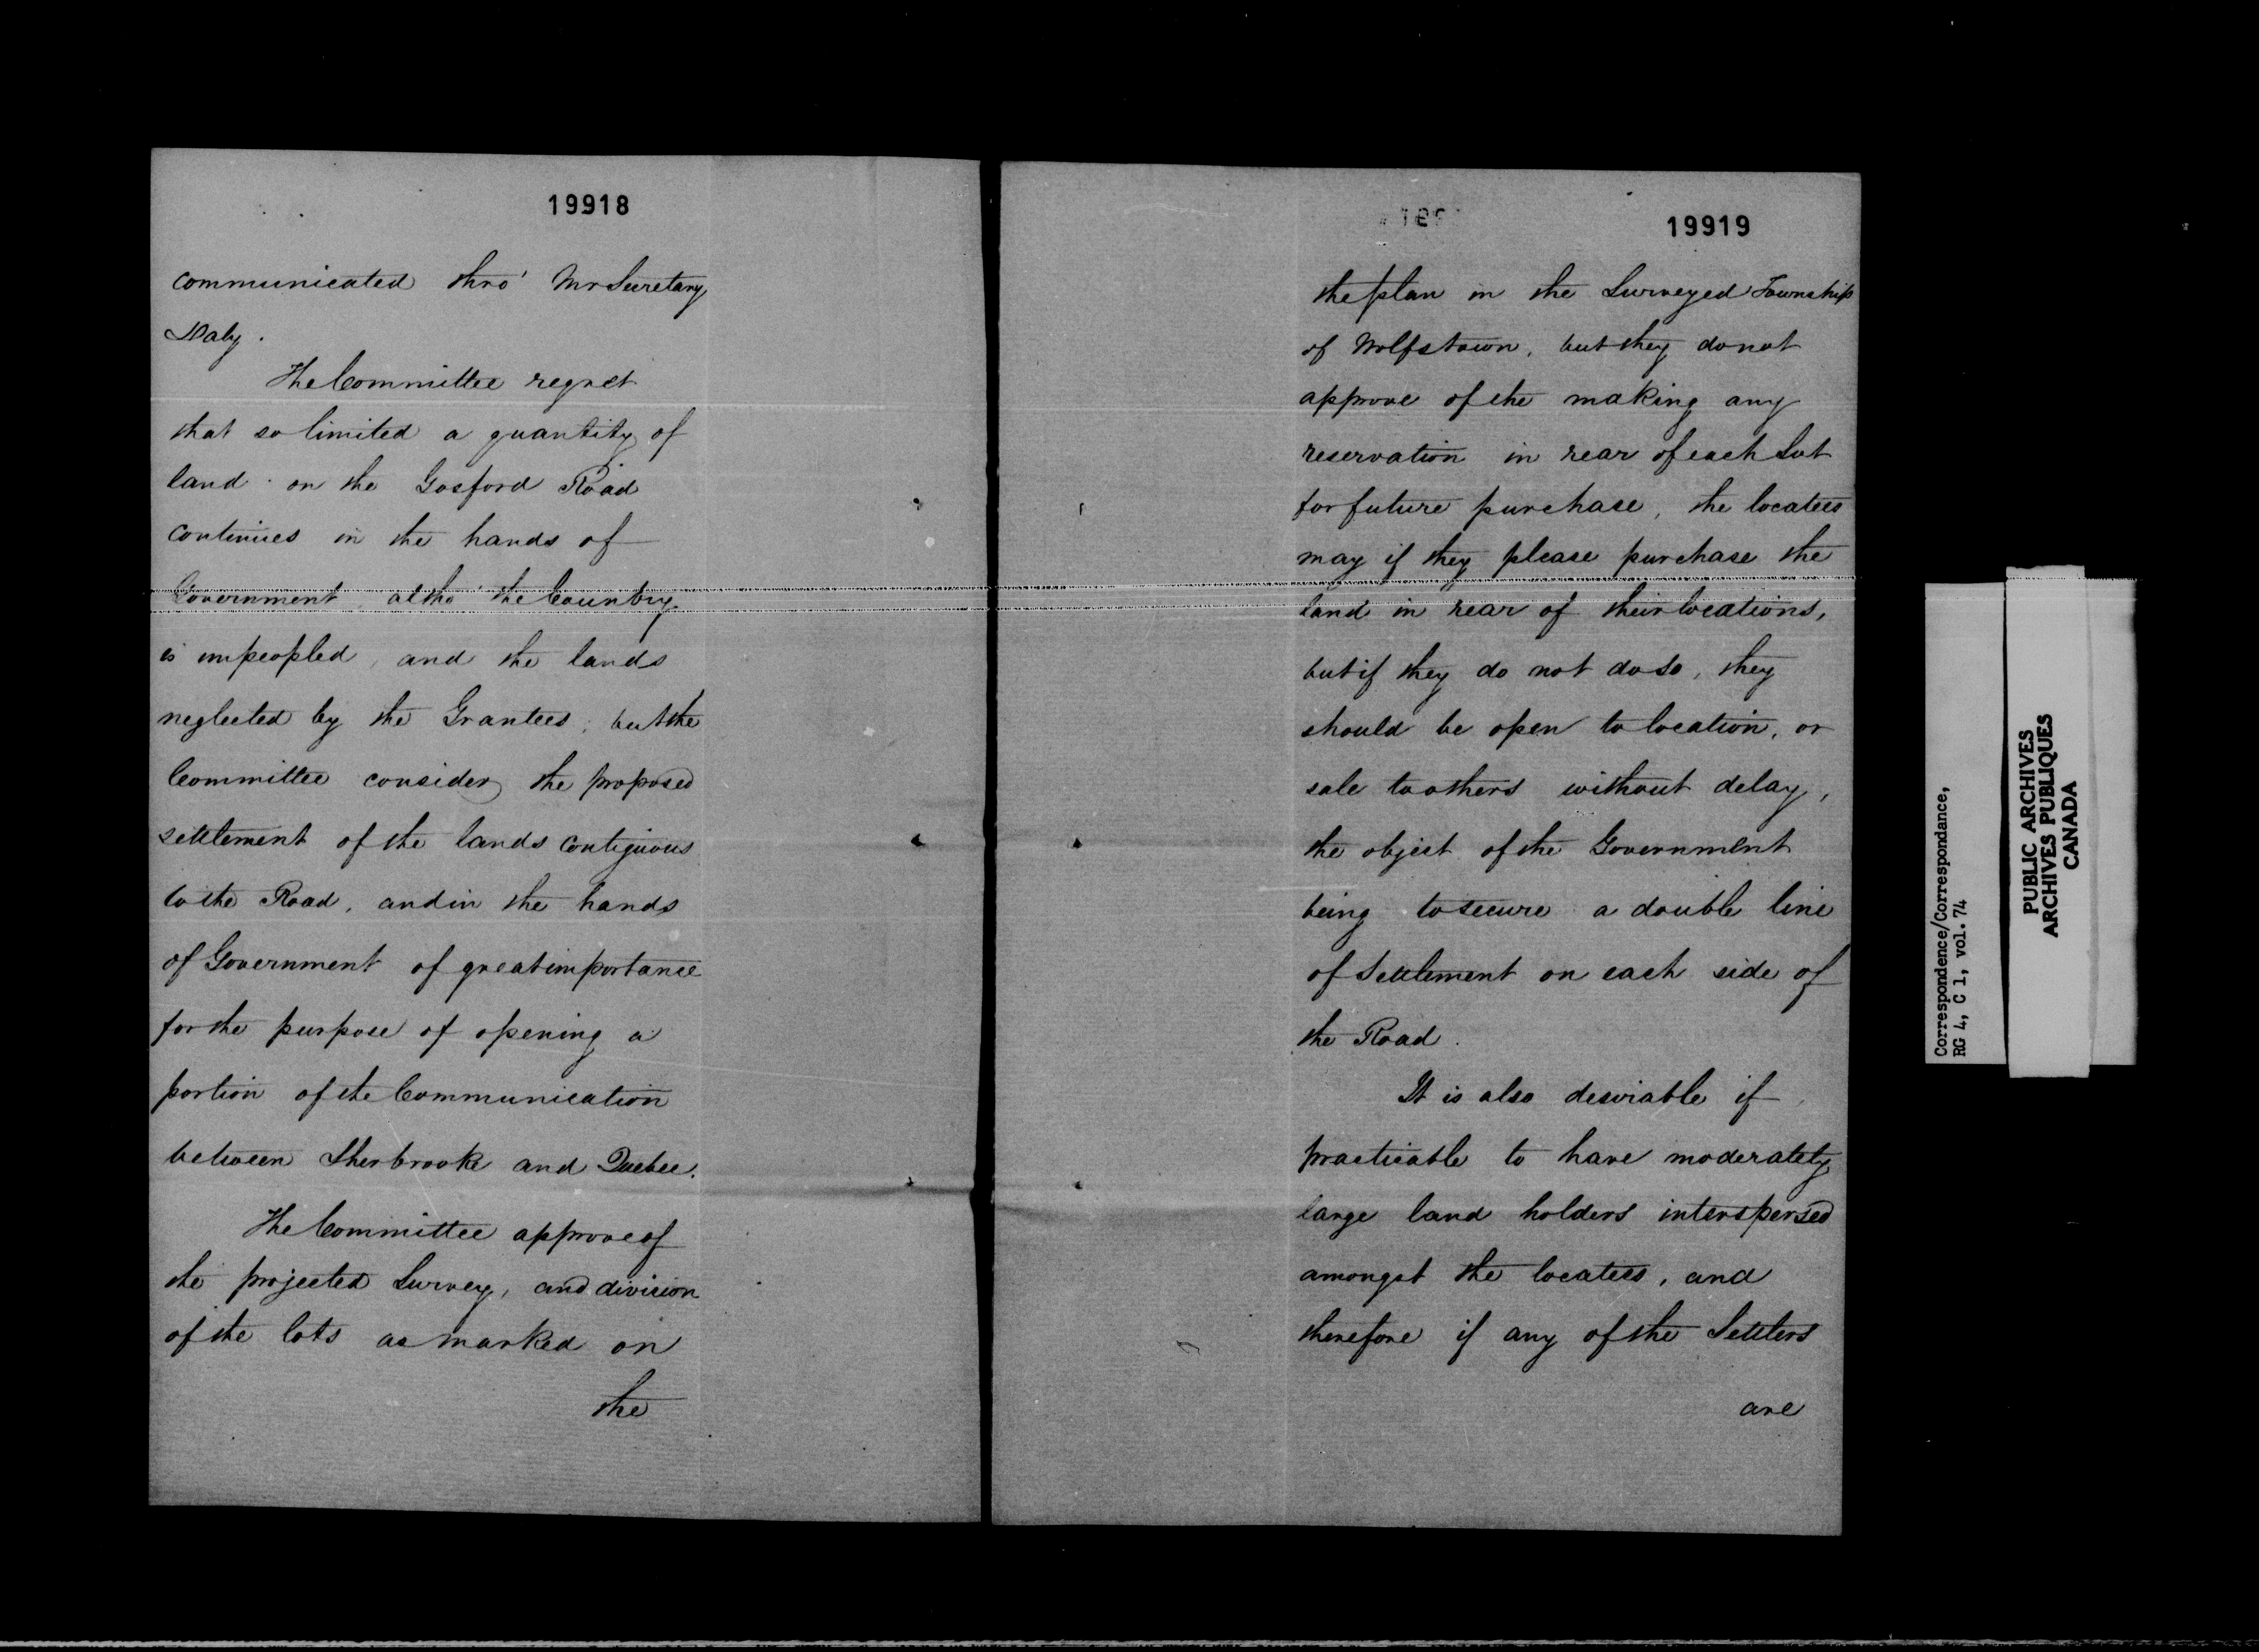 19918
communicated thro' Mr Secretary
Daly.
The Committee regret
that so limited a quantity of
land on the Gosford Road
continues in the hands of
Government, altho' the Country
is unpeopled, and the lands
neglected by the Grantees; but the
Committee consider the proposed
settlement of the lands contiguous
to the Road, and in the hands
of Government of great importance
for the purpose of opening a
portion of the Communication
between Sherbrooke and Quebec.
The Committee approve of
the projected Survey, and division
of the lots as marked on
the
19919
the plan in the Surveyed Township
of Wolfstown, but they do not
approve of the making any
reservation in rear of each Lot
for future purchase, the locatees
may if they please purchase the
land in rear of their locations,
but if they do not do so, they
should be open to location, or
sale to others without delay,
the object of the Government
being to secure a double line
of Settlement on each side of
the Road.
It is also desirable if
practicable to have moderately
large land holders interspersed
amongst the locatees, and
therefore if any of the Settlers
are
Correspondence/Correspondance,
RG 4, C 1, vol. 74
PUBLIC ARCHIVES
ARCHIVES PUBLIQUES
CANADA